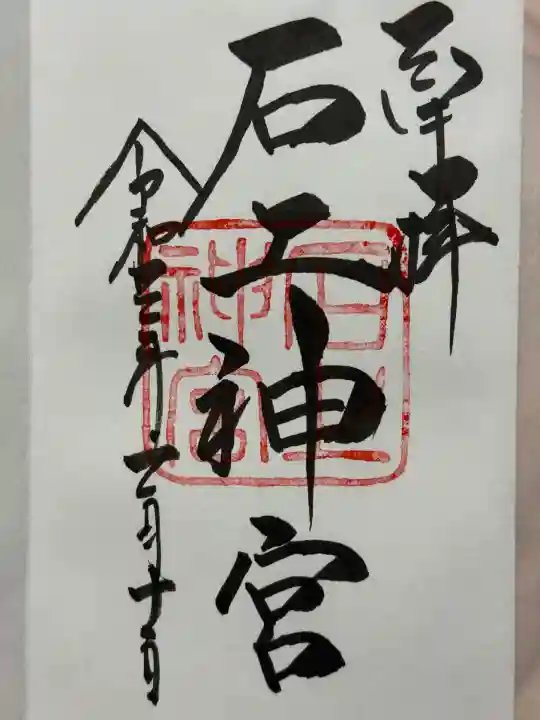 奉拝
石上神宮
令和三年二月十一日
石上
神宮